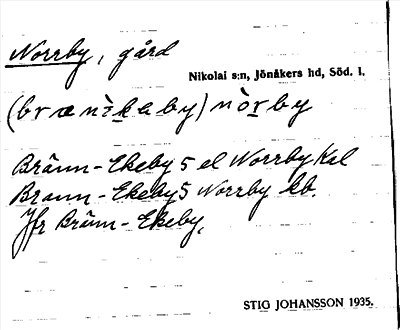 Norrby, gård
Nikolai s:n, Jönåkers hd, Söd. l.
(brænìkeby) nòrby
Bränn-Ekeby 5 el Norrby Kal
Brann-Ekeby 5 Norrby kb.
Jfr Bränn-Ekeby,
STIG JOHANSSON 1935.